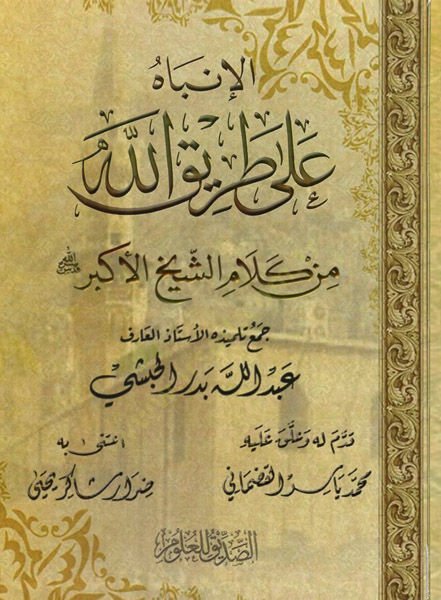 الإنباه
على طريق الله
من كلام الشيخ الأكبر
جمع تلميذه الأستاذ العارف
عبد الله بدر الحبشي
قدّم له وعلّق عليه
محمد ياسر القضماني
اعتنى به
ضرار شاكر يحيى
الصديق للعلوم